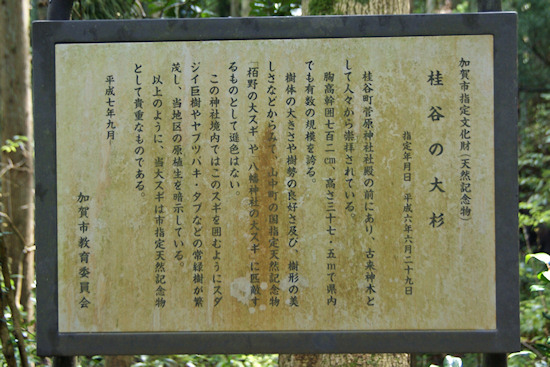 加賀市指定文化財(天然記念物)
桂谷の大杉
指定年月日 平成六年六月二十九日
桂谷町菅原神社社殿の前にあり、古来神木と
して人々から崇拝されている。
胸高幹囲七百二cm、高さ三十七・五mで県内
でも有数の規模を誇る。
樹体の大きさや樹勢の良好さ及び、樹形の美
しさなどからみて、山中町の国指定天然記念物
「栢野の大スギ」や「八幡神社の大スギ」に匹敵す
るものとして遜色はない。
この神社境内ではこのスギを囲むようにスダ
ジイ巨樹やヤブツバキ・タブなどの常緑樹が繁
茂し、当地区の原植生を暗示している。
以上のように、当大スギは市指定天然記念物
として貴重なものである。
平成七年九月
加賀市教育委員会